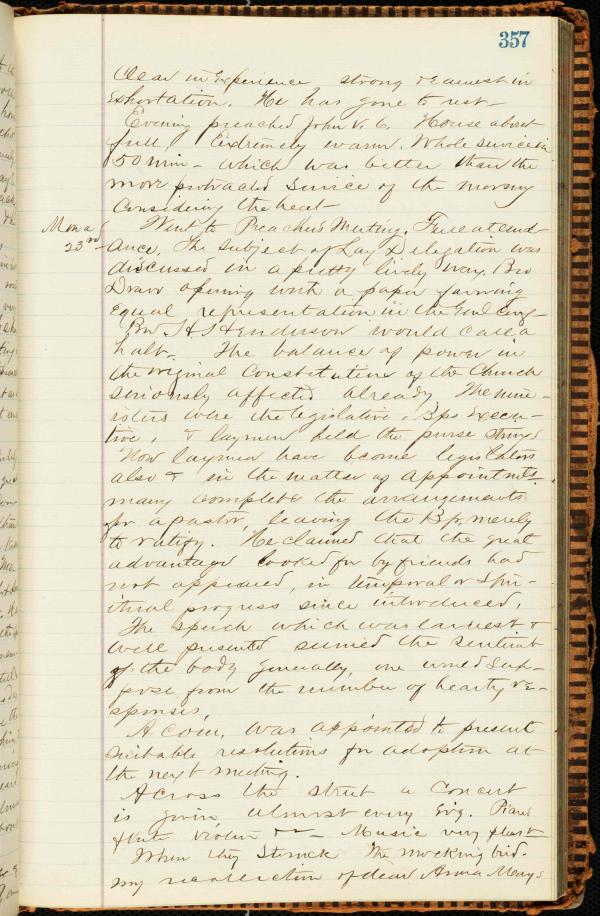 357
Clear in Experience strong & Earnest in
Exhortation. He has gone to rest—
Evening preached John V. 6. House about
full Extremely warm. Whole service in
50 min— which was better than the
more protracted service of the morning
Considering the heat—
Monday
23rd
Went to Preacher's Meeting. Free attend-
ance. The subject of Lay Delegation was
discussed in a pretty lively way. Bro
opening with a paper favoring
Equal representation in the Genl Cong—
Bro. Henderson would call a
halt— The balance of power in
the original Constitution of the Church
seriously affected already. The min-
isters were the legislative, Bps Execu-
tive, & laymen held the purse strings
Now laymen have become legislators
also & in the matter of appointmts
many complete the arrangements
for a pastor, leaving the Bp. merely
to ratify. He claimed that the great
advantage looked for by friends had
not appeared, in temporal or Spir-
itual progress since introduced.
The speech which was earnest &
well presented seemed the sentimt
of the body generally, one would sup-
pose from the number of hearty re-
sponses.
A com. was appointed to present
suitable resolutions for adoption at
the next meeting.
Across the street a Concert
is given almost every Evg. Piano
flute violin &c— Music very fast—
When they struck The mocking bird.
my recollection of dear Anna Mary's